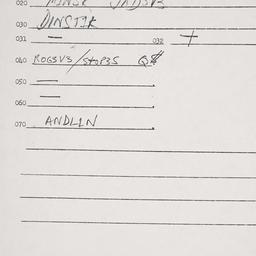 020
030 DINSTIK
031 — 032 +
040 ROGSV3/STOP35
050 —
060 —
070 ANDLLN